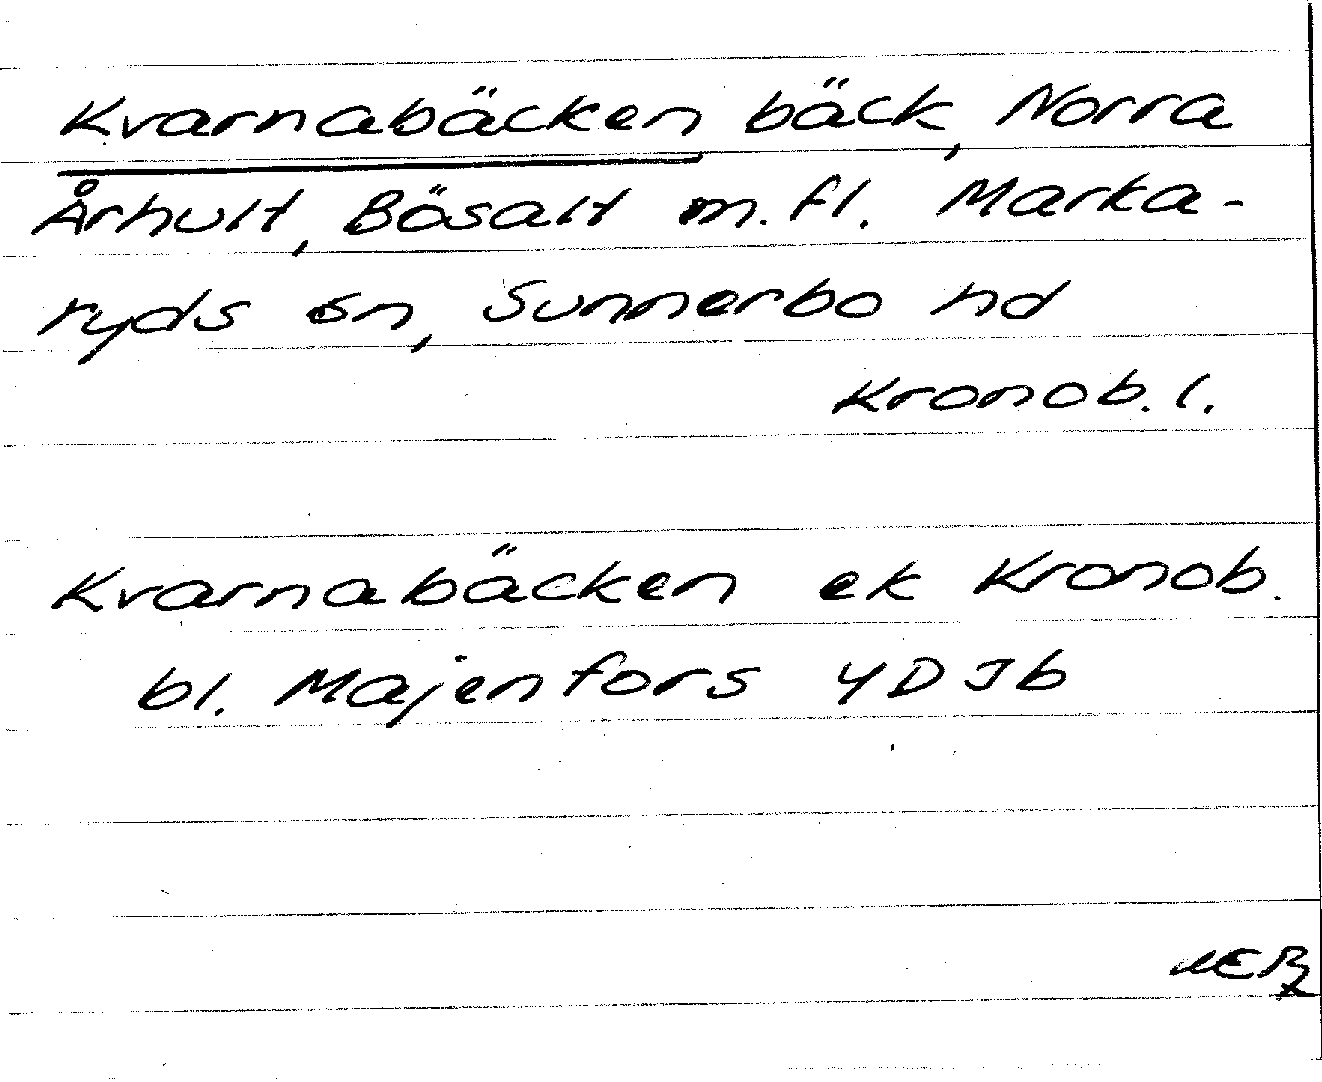 Kvarnabäcken bäck, Norra
Århult, Bösalt m.fl. Marka-
ryds sn, Sunnerbo hd
Kronob. l.
Kvarnabäcken ek Kronob.
bl. Majenfors 4D Jb